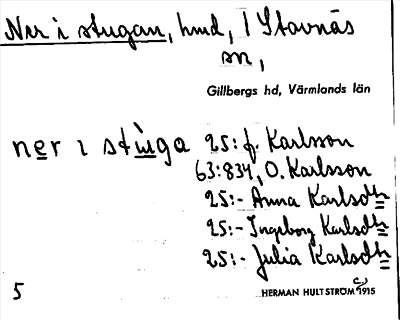 Ner i stugan, hmd, I Stavnäs
sn,
Gillbergs hd, Värmlands län
ner i stùga 25: f. Karlsson
63:834, O. Karlsson
25:- Anna Karlsdtr
25:- Ingeborg Karlsdtr
25:- Julia Karlsdtr
5
HERMAN HULTSTRÖM 1915